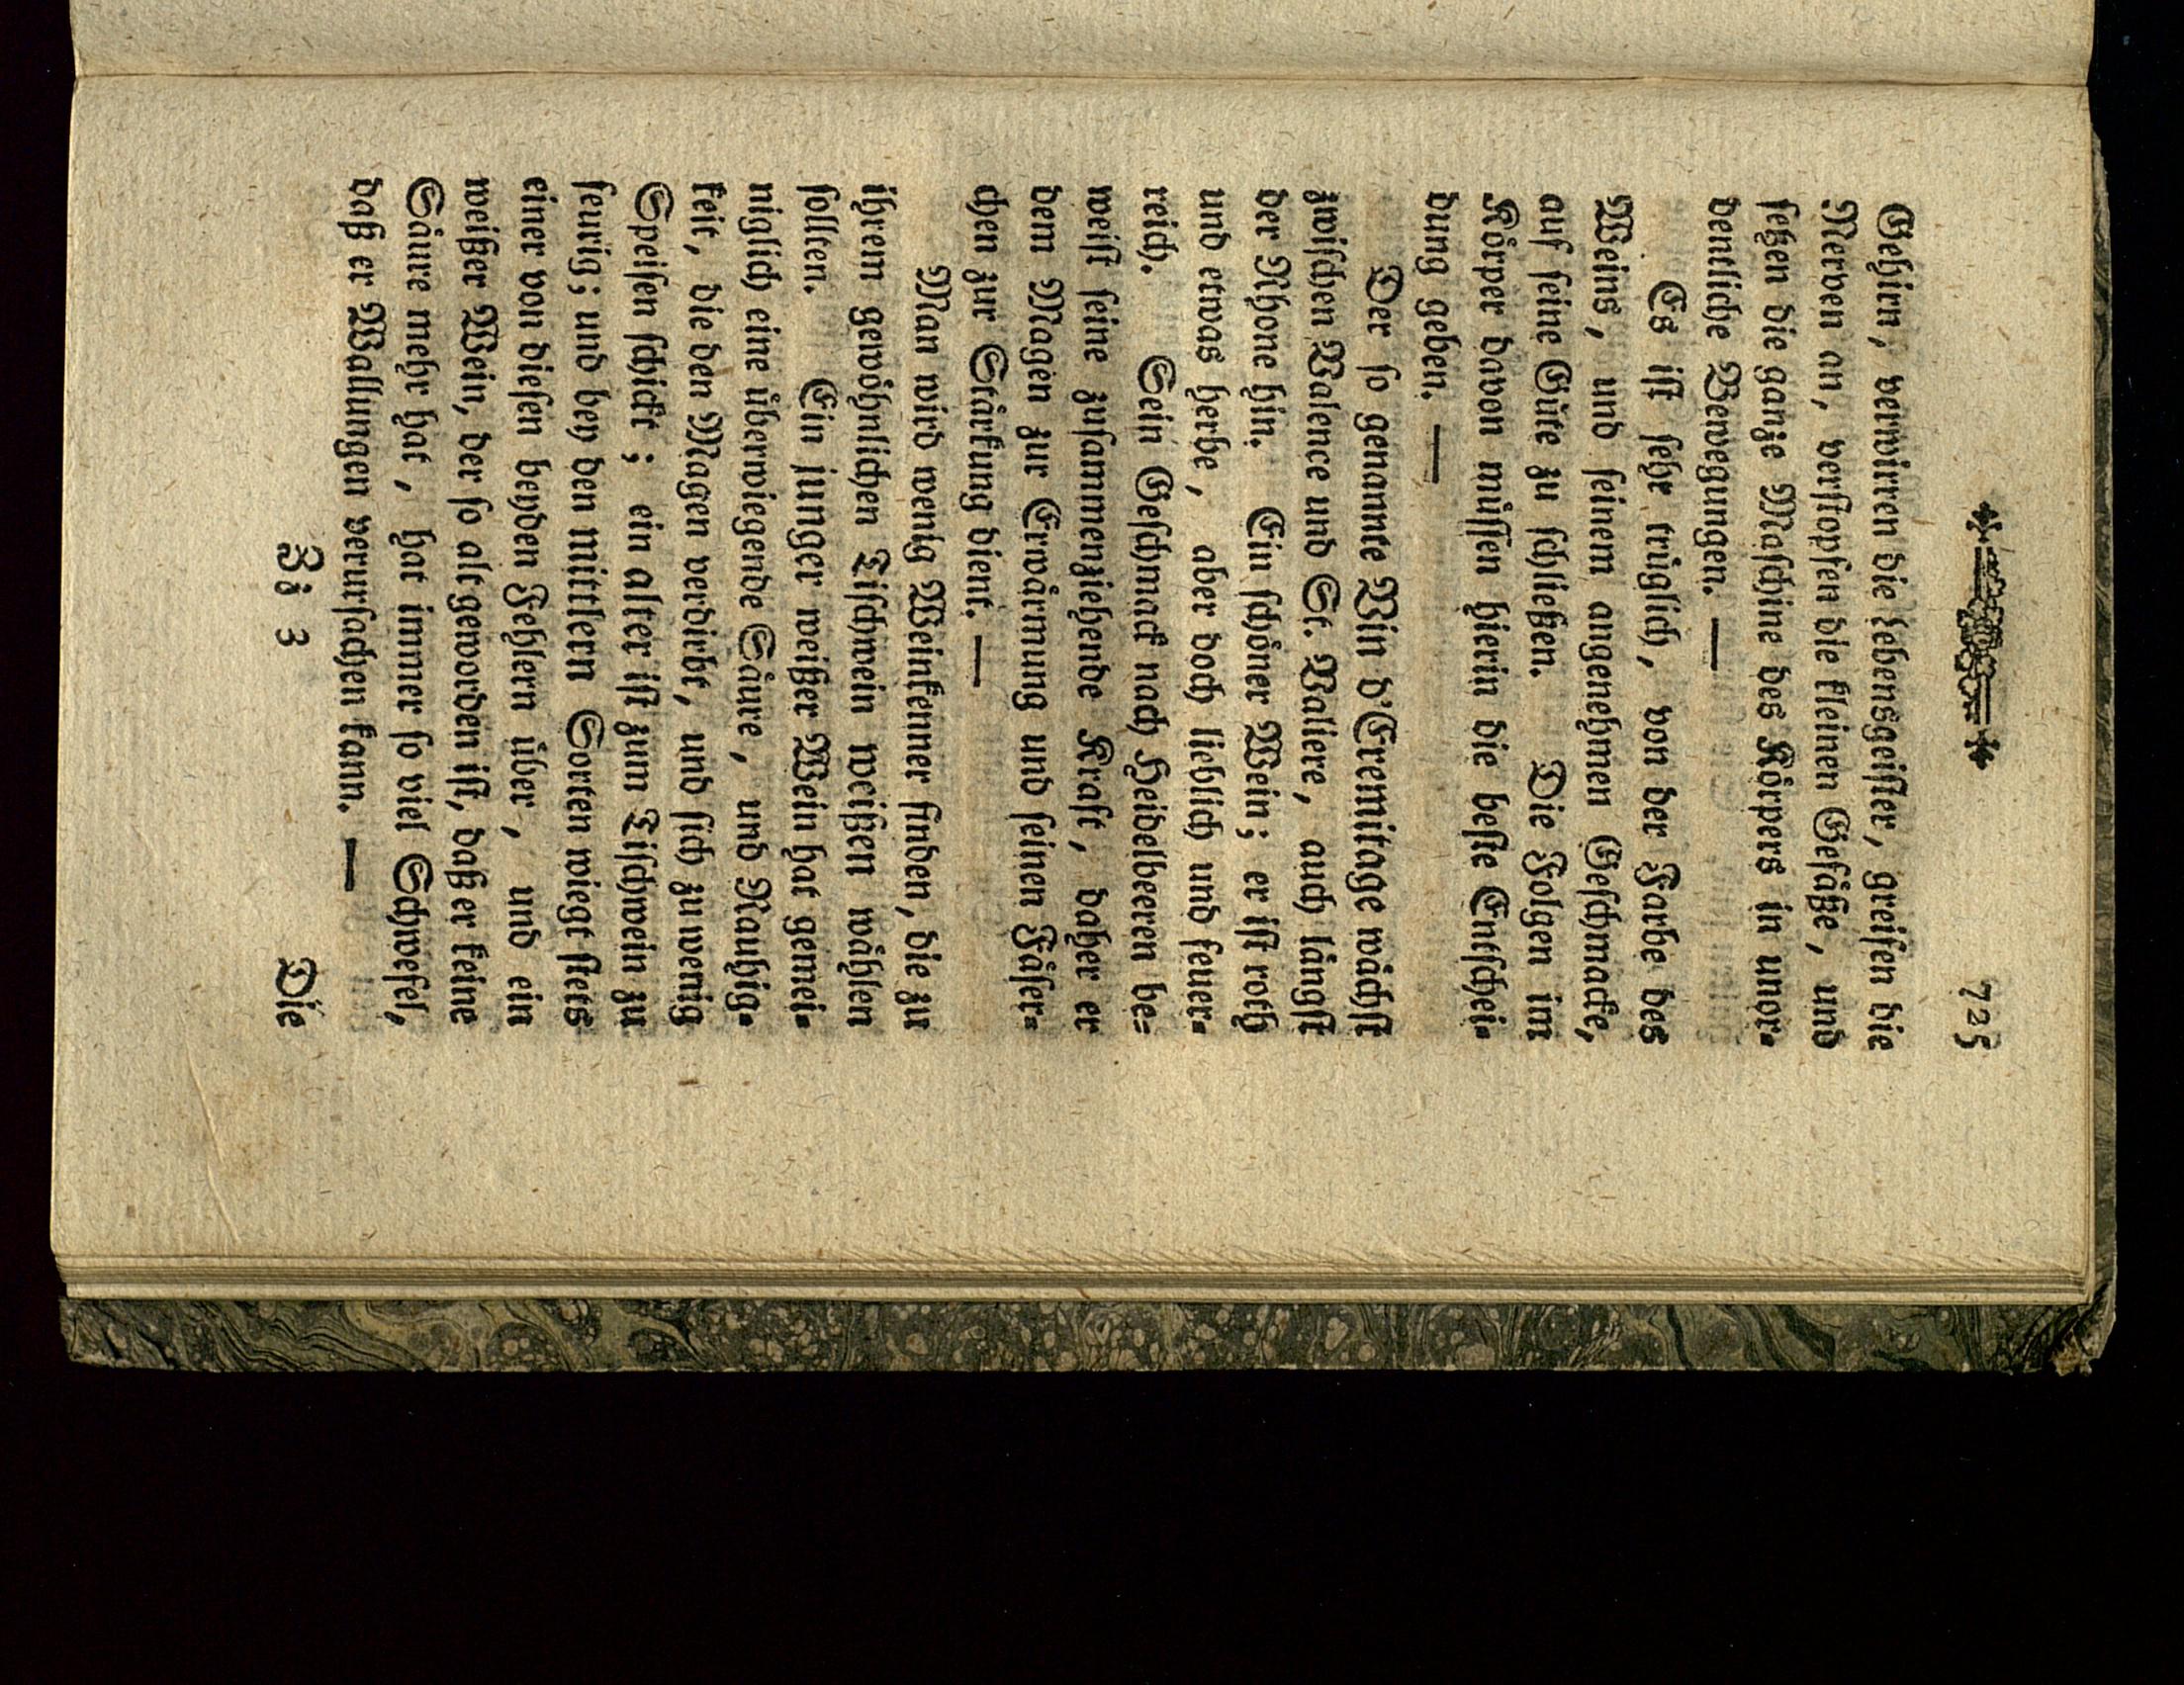 725
Gehirn, verwirren die Lebensgeister, greifen die
Nerven an, verstopfen die kleinen Gefäße, und
setzen die ganze Maschine des Körpers in unor-
dentliche Bewegungen. —
Es ist sehr trüglich, von der Farbe des
Weins, und seinem angenehmen Geschmacke,
auf seine Güte zu schließen. Die Folgen im
Körper davon müssen hierin die beste Entschei-
dung geben. —
Der so genannte Vin d'Eremitage wächst
zwischen Valence und St. Valiere, auch längst
der Rhone hin. Ein schöner Wein; er ist roth
und etwas herbe, aber doch lieblich und feuer-
reich. Sein Geschmack nach Heidelbeeren be-
weist seine zusammenziehende Kraft, daher er
dem Magen zur Erwärmung und seinen Fäser-
chen zur Stärkung dient. —
Man wird wenig Weinkenner finden, die zu
ihrem gewöhnlichen Tischwein weißen wählen
sollten. Ein junger weißer Wein hat gemei-
niglich eine überwiegende Säure, und Rauhig-
keit, die den Magen verdirbt, und sich zu wenig
Speisen schickt; ein alter ist zum Tischwein zu
feurig; und bey den mittlern Sorten wiegt stets
einer von diesen beyden Fehlern über, und ein
weißer Wein, der so alt geworden ist, daß er keine
Säure mehr hat, hat immer so viel Schwefel,
daß er Wallungen verursachen kann. —
Zz 3 Die